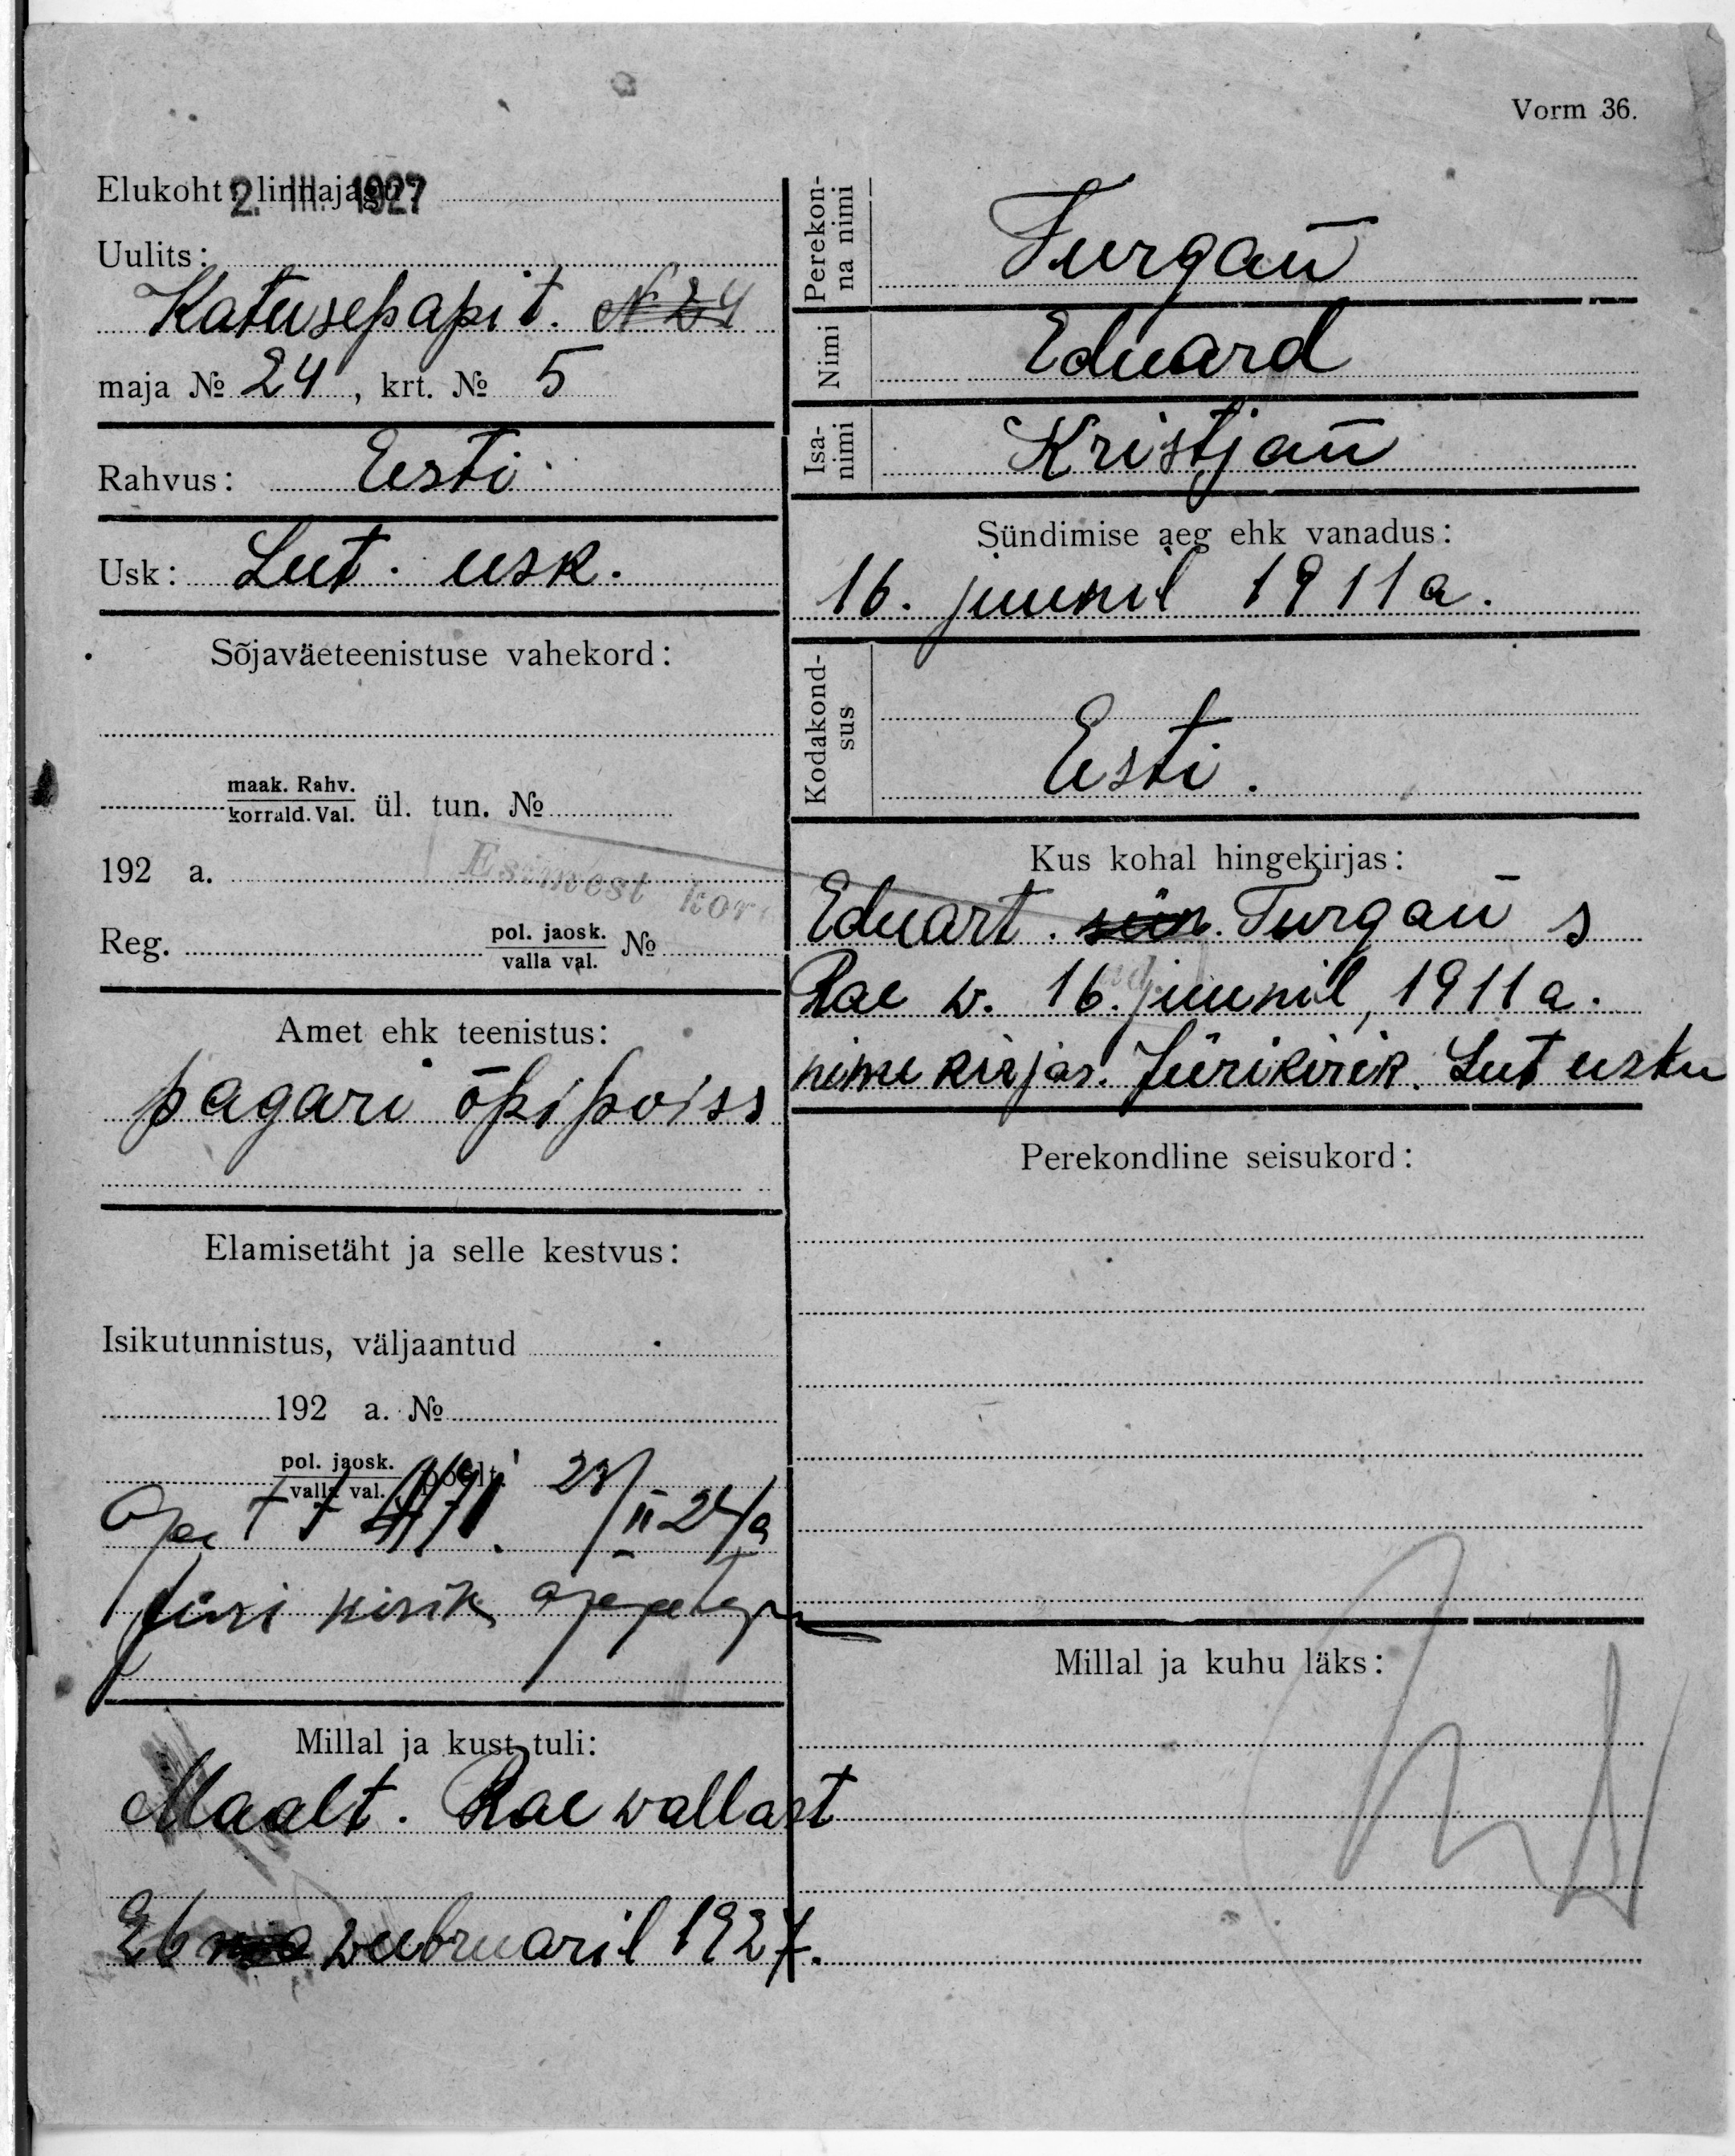 Vorm 36.
Elukoht: linnajagu
2. III. 1927
Uulits:
Katusepapi t. N 24
maja № 24, krt. № 5
Rahvus: Eesti
Usk: Lut. usk.
Sõjaväeteenistuse vahekord:
maak. Rahv.
korrald. Val. ül. tun. №
192 a.
Esimest kor
Reg. pol. jaosk.
valla val. №
Amet ehk teenistus:
pagari õpipoiss
Elamisetäht ja selle kestvus:
Isikutunnistus, väljaantud
192 a. №
pol. jaosk.
valla val. poolt.
23/II 24/a
Jüri kirik
Millal ja kust tuli:
Maalt. Rae wallast
26 weebruaril 1927.
Perekon-
na nimi
Turgan̄
Nimi
Eduard
Isa-
nimi
Kristjan̄
Sündimise aeg ehk vanadus:
16. juunil 1911 a.
Kodakond-
sus
Esti.
Kus kohal hingekirjas:
Eduart. sün. Turgan̄ s
Rae w. 16. juunil, 1911 a.
nime kirjas. Jürikirik. Lut usku
Perekondline seisukord:
Millal ja kuhu läks: